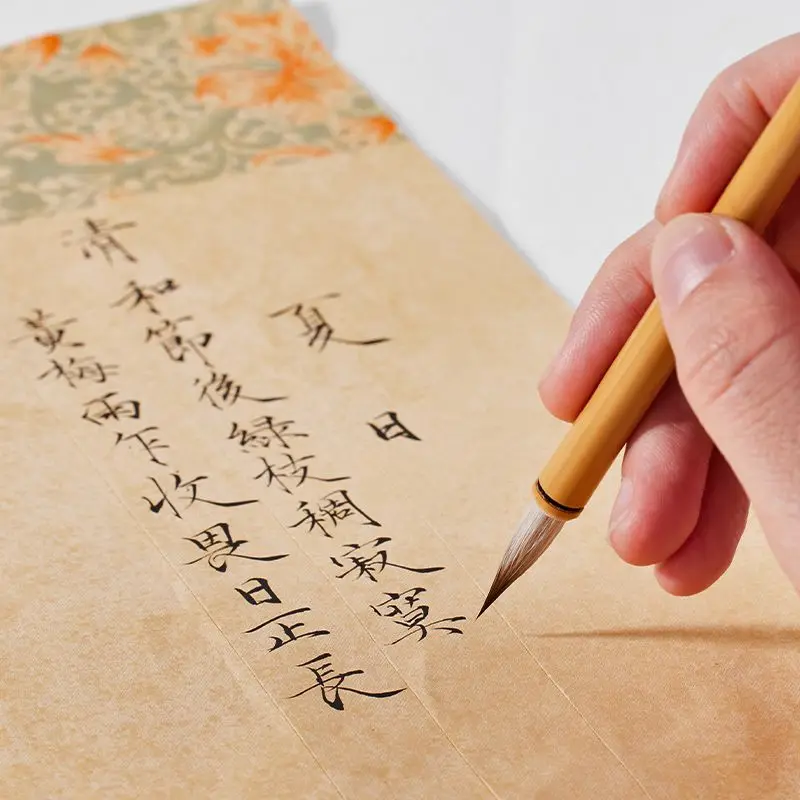 夏日
清和節後綠枝稠寂寞
黃梅雨乍收畏日正長